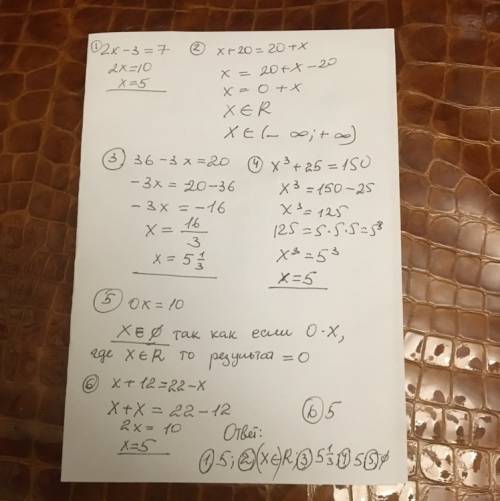 ① 2x-3=7
2x=10
x=5
② x+20=20+x
x = 20+x-20
x = 0+x
x∈R
x∈(-∞;+∞)
③ 36-3x=20
-3x = 20-36
-3x = -16
x = 16/3
x = 5 1/3
④ x³+25=150
x³=150-25
x³=125
125=5·5·5=5³
x³=5³
x=5
⑤ 0x=10
x∈∅ так как если 0·x,
где x∈R то результат =0
⑥ x+12=22-x
x+x = 22-12
2x = 10
x=5
Ответ:
⑥ 5
① 5; ② x∈R; ③ 5 1/3; ④ 5 ⑤ ∅